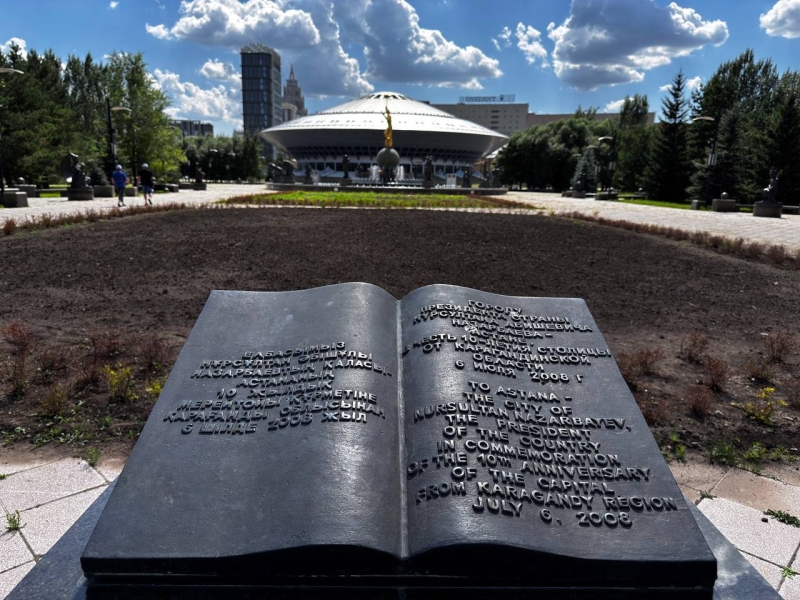 ЕЛБАСЫМЫЗ
НҰРСҰЛТАН ӘБІШҰЛЫ
НАЗАРБАЕВТЫҢ ҚАЛАСЫ
АСТАНАНЫҢ
10 ЖЫЛДЫҚ
МЕРЕЙТОЙЫ ҚҰРМЕТІНЕ
ҚАРАҒАНДЫ ОБЛЫСЫНАН
6 ШІЛДЕ 2008 ЖЫЛ
ГОРОДУ
ПРЕЗИДЕНТА СТРАНЫ
НУРСУЛТАНА АБИШЕВИЧА
НАЗАРБАЕВА -
В ЧЕСТЬ 10-ЛЕТИЯ СТОЛИЦЫ
ОТ КАРАГАНДИНСКОЙ
ОБЛАСТИ
6 ИЮЛЯ 2008 Г
TO ASTANA -
THE CITY OF
NURSULTAN NAZARBAYEV,
THE PRESIDENT
OF THE COUNTRY
IN COMMEMORATION
OF THE 10TH ANNIVERSARY
OF THE CAPITAL
FROM KARAGANDY REGION
JULY 6, 2008